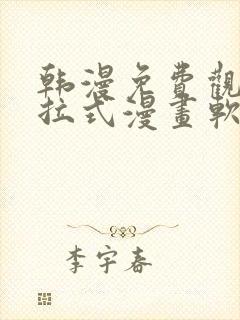 韩漫免費觀
拉式漫畫軟
李宇春